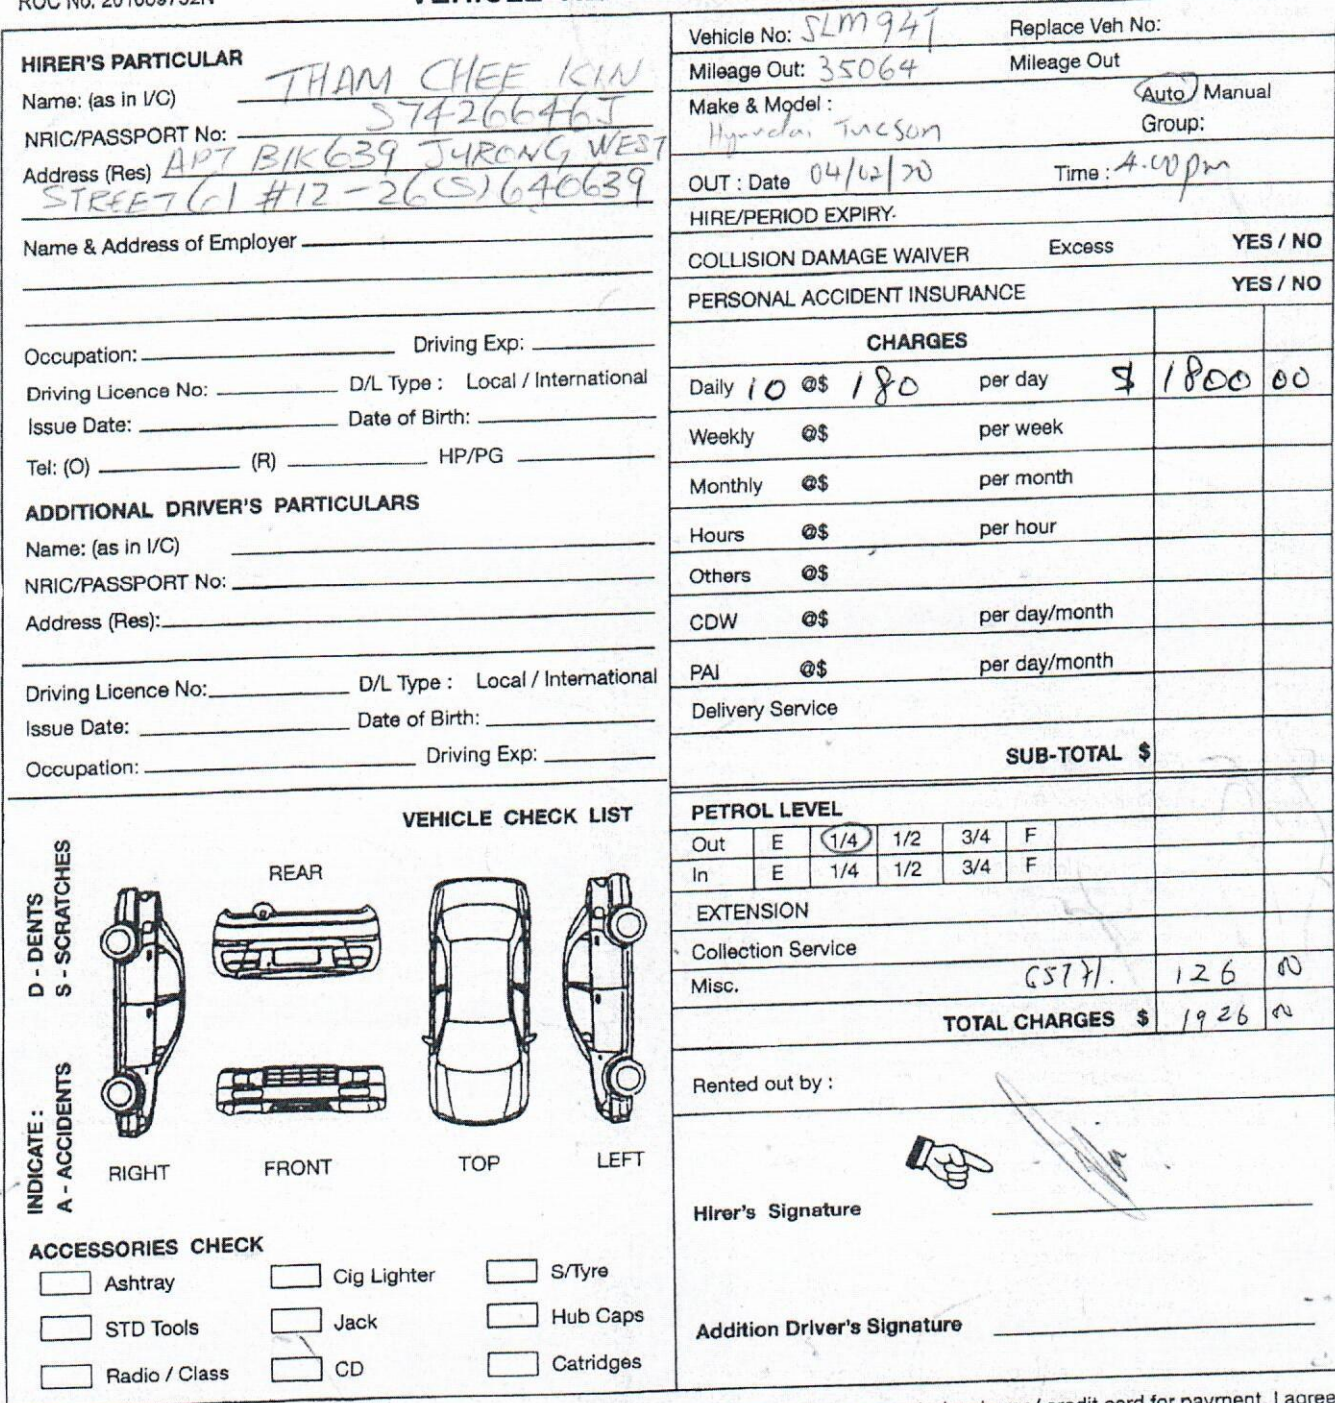 HIRER'S PARTICULAR
Name: (as in I/C) THAM CHEE KIN
NRIC/PASSPORT No: S7426646J
Address (Res) APT BLK 639 JURONG WEST
STREET 61 #12-26 (S) 640639
Name & Address of Employer
Occupation: Driving Exp:
Driving Licence No: D/L Type : Local / International
Issue Date: Date of Birth:
Tel: (O) (R) HP/PG
ADDITIONAL DRIVER'S PARTICULARS
Name: (as in I/C)
NRIC/PASSPORT No:
Address (Res):
Driving Licence No: D/L Type : Local / International
Issue Date: Date of Birth:
Occupation: Driving Exp:
VEHICLE CHECK LIST
INDICATE : D - DENTS
A - ACCIDENTS S - SCRATCHES
REAR
RIGHT FRONT TOP LEFT
ACCESSORIES CHECK
Ashtray Cig Lighter S/Tyre
STD Tools Jack Hub Caps
Radio / Class CD Catridges
Vehicle No: Replace Veh No:
Mileage Out: 35064 Mileage Out
Make & Model : Auto / Manual
Hyundai Tucson Group:
OUT : Date 04/02/20 Time : 4.00pm
HIRE/PERIOD EXPIRY.
COLLISION DAMAGE WAIVER Excess YES / NO
PERSONAL ACCIDENT INSURANCE YES / NO
CHARGES
Daily 10 @$ 180 per day $ 1800 00
Weekly @$ per week
Monthly @$ per month
Hours @$ per hour
Others @$
CDW @$ per day/month
PAI @$ per day/month
Delivery Service
SUB-TOTAL $
PETROL LEVEL
Out E 1/4 1/2 3/4 F
In E 1/4 1/2 3/4 F
EXTENSION
Collection Service
Misc. GST 7%. 126 00
TOTAL CHARGES $ 1926 00
Rented out by :
Hirer's Signature
Addition Driver's Signature
credit card for payment. I agree